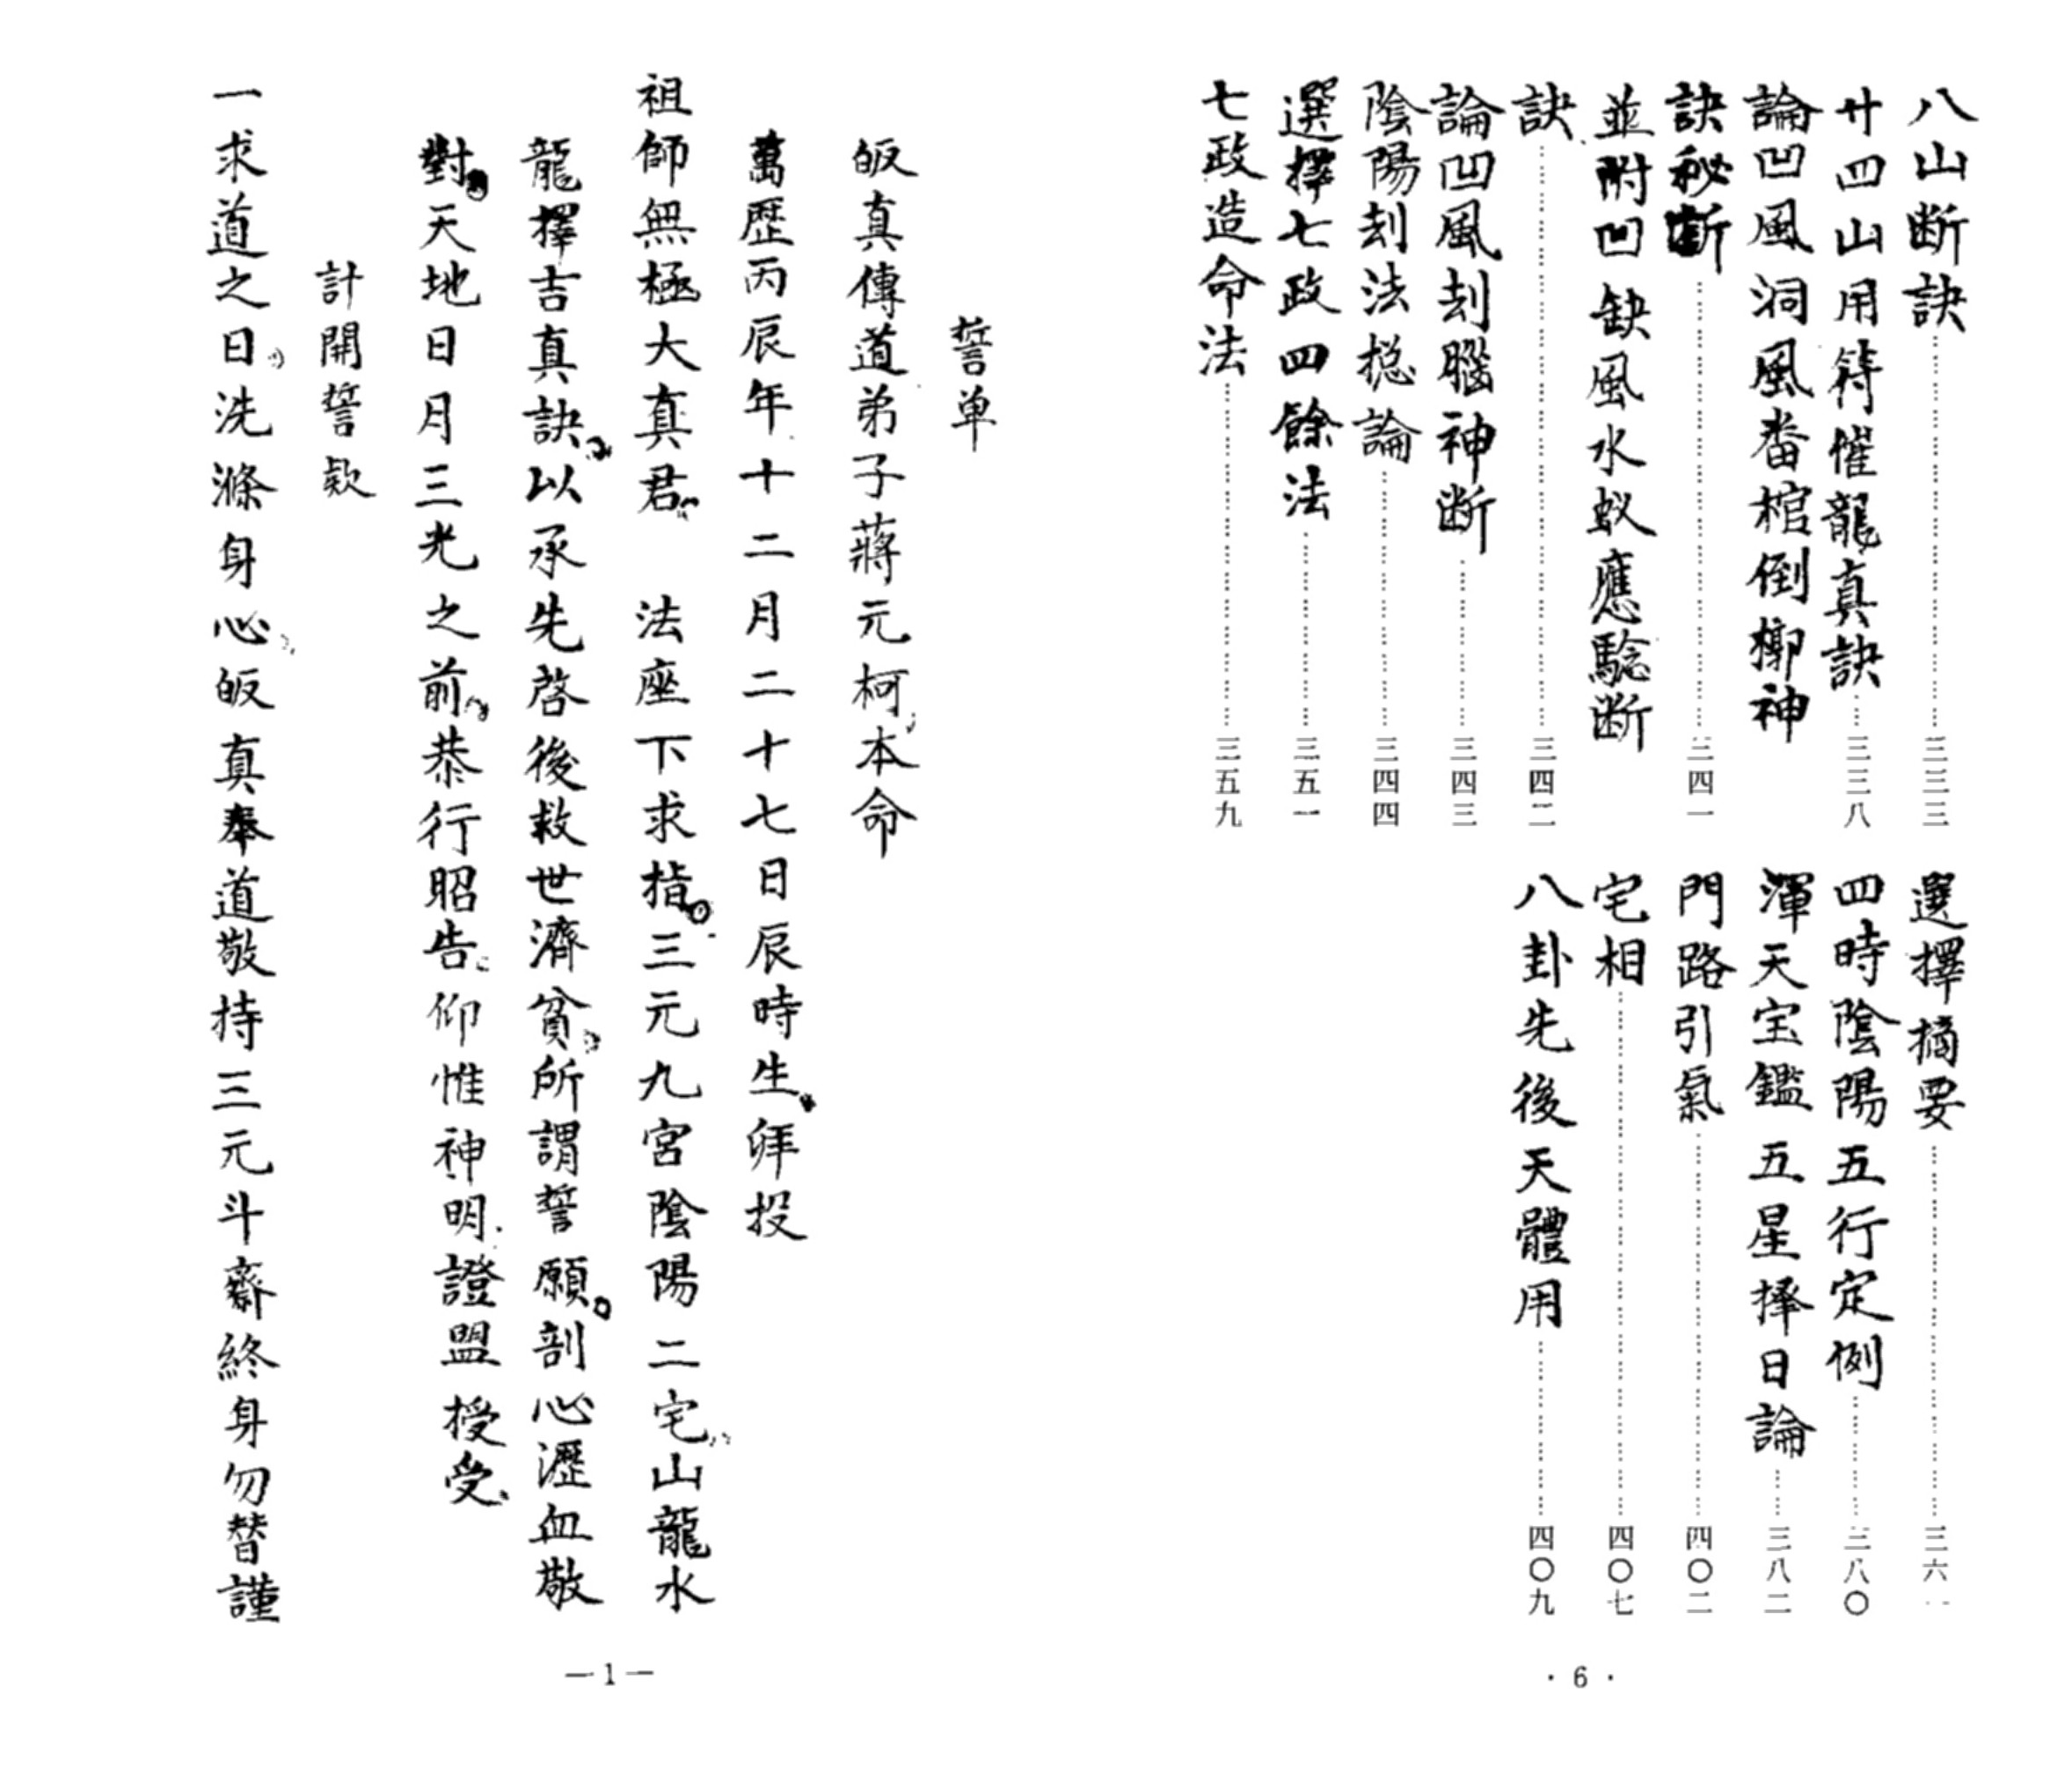 八山断訣……三三三
廿四山用符催龍真訣……三三八
論凹風洞風畨棺倒槨神
訣秘斷……三四一
並附凹缺風水蚁應騐断
訣……三四二
論凹風刦腦神断……三四三
陰陽刦法捴論……三四四
選擇七政四餘法……三五一
七政造命法……三五九
選擇摘要……三六
四時陰陽五行定例……三八〇
渾天宝鑑五星擇日論……三八二
門路引氣……四〇二
宅相……四〇七
八卦先後天體用……四〇九
·6·
誓单
皈真傳道弟子蔣元柯本命
萬歷丙辰年十二月二十七日辰時生拜投
祖師無極大真君 法座下求指三元九宮陰陽二宅山龍水
龍擇吉真訣以承先啓後救世濟貧所謂誓願剖心瀝血敬
對天地日月三光之前恭行昭告仰惟神明證盟授受
計開誓欵
一求道之日洗滌身心皈真奉道敬持三元斗齋終身勿替謹
—1—